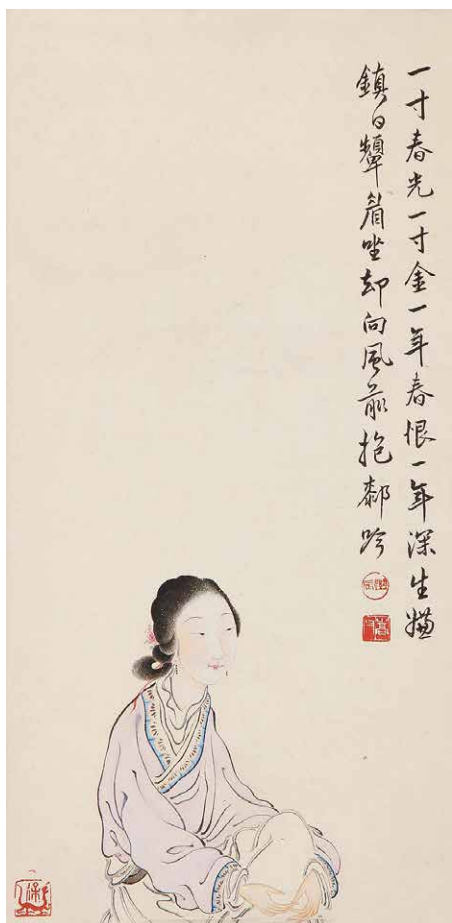 一寸春光一寸金一年春恨一年深生嫌
鎮日顰眉坐却向風前抱厀吟